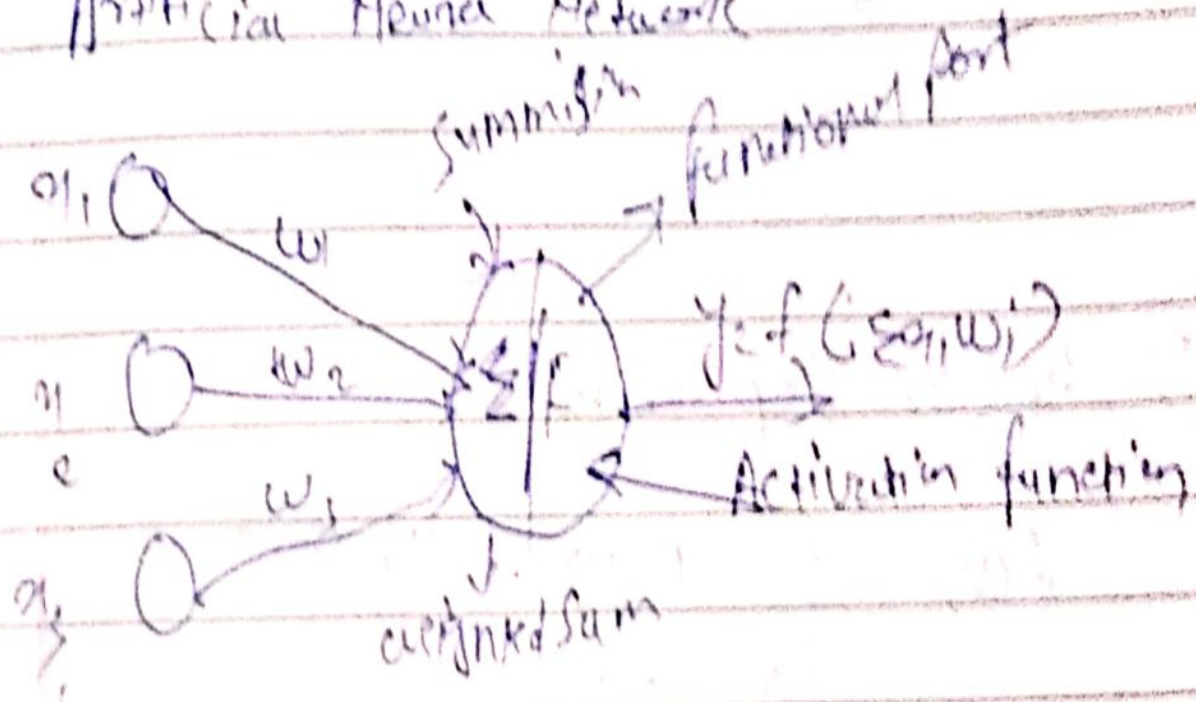 Artificial Neural Network
summision
functional port
x₁
w₁
Σ f
y=f(Σx₁w₁)
x₂
w₂
Activation function
w₃
x₃
weighted sum